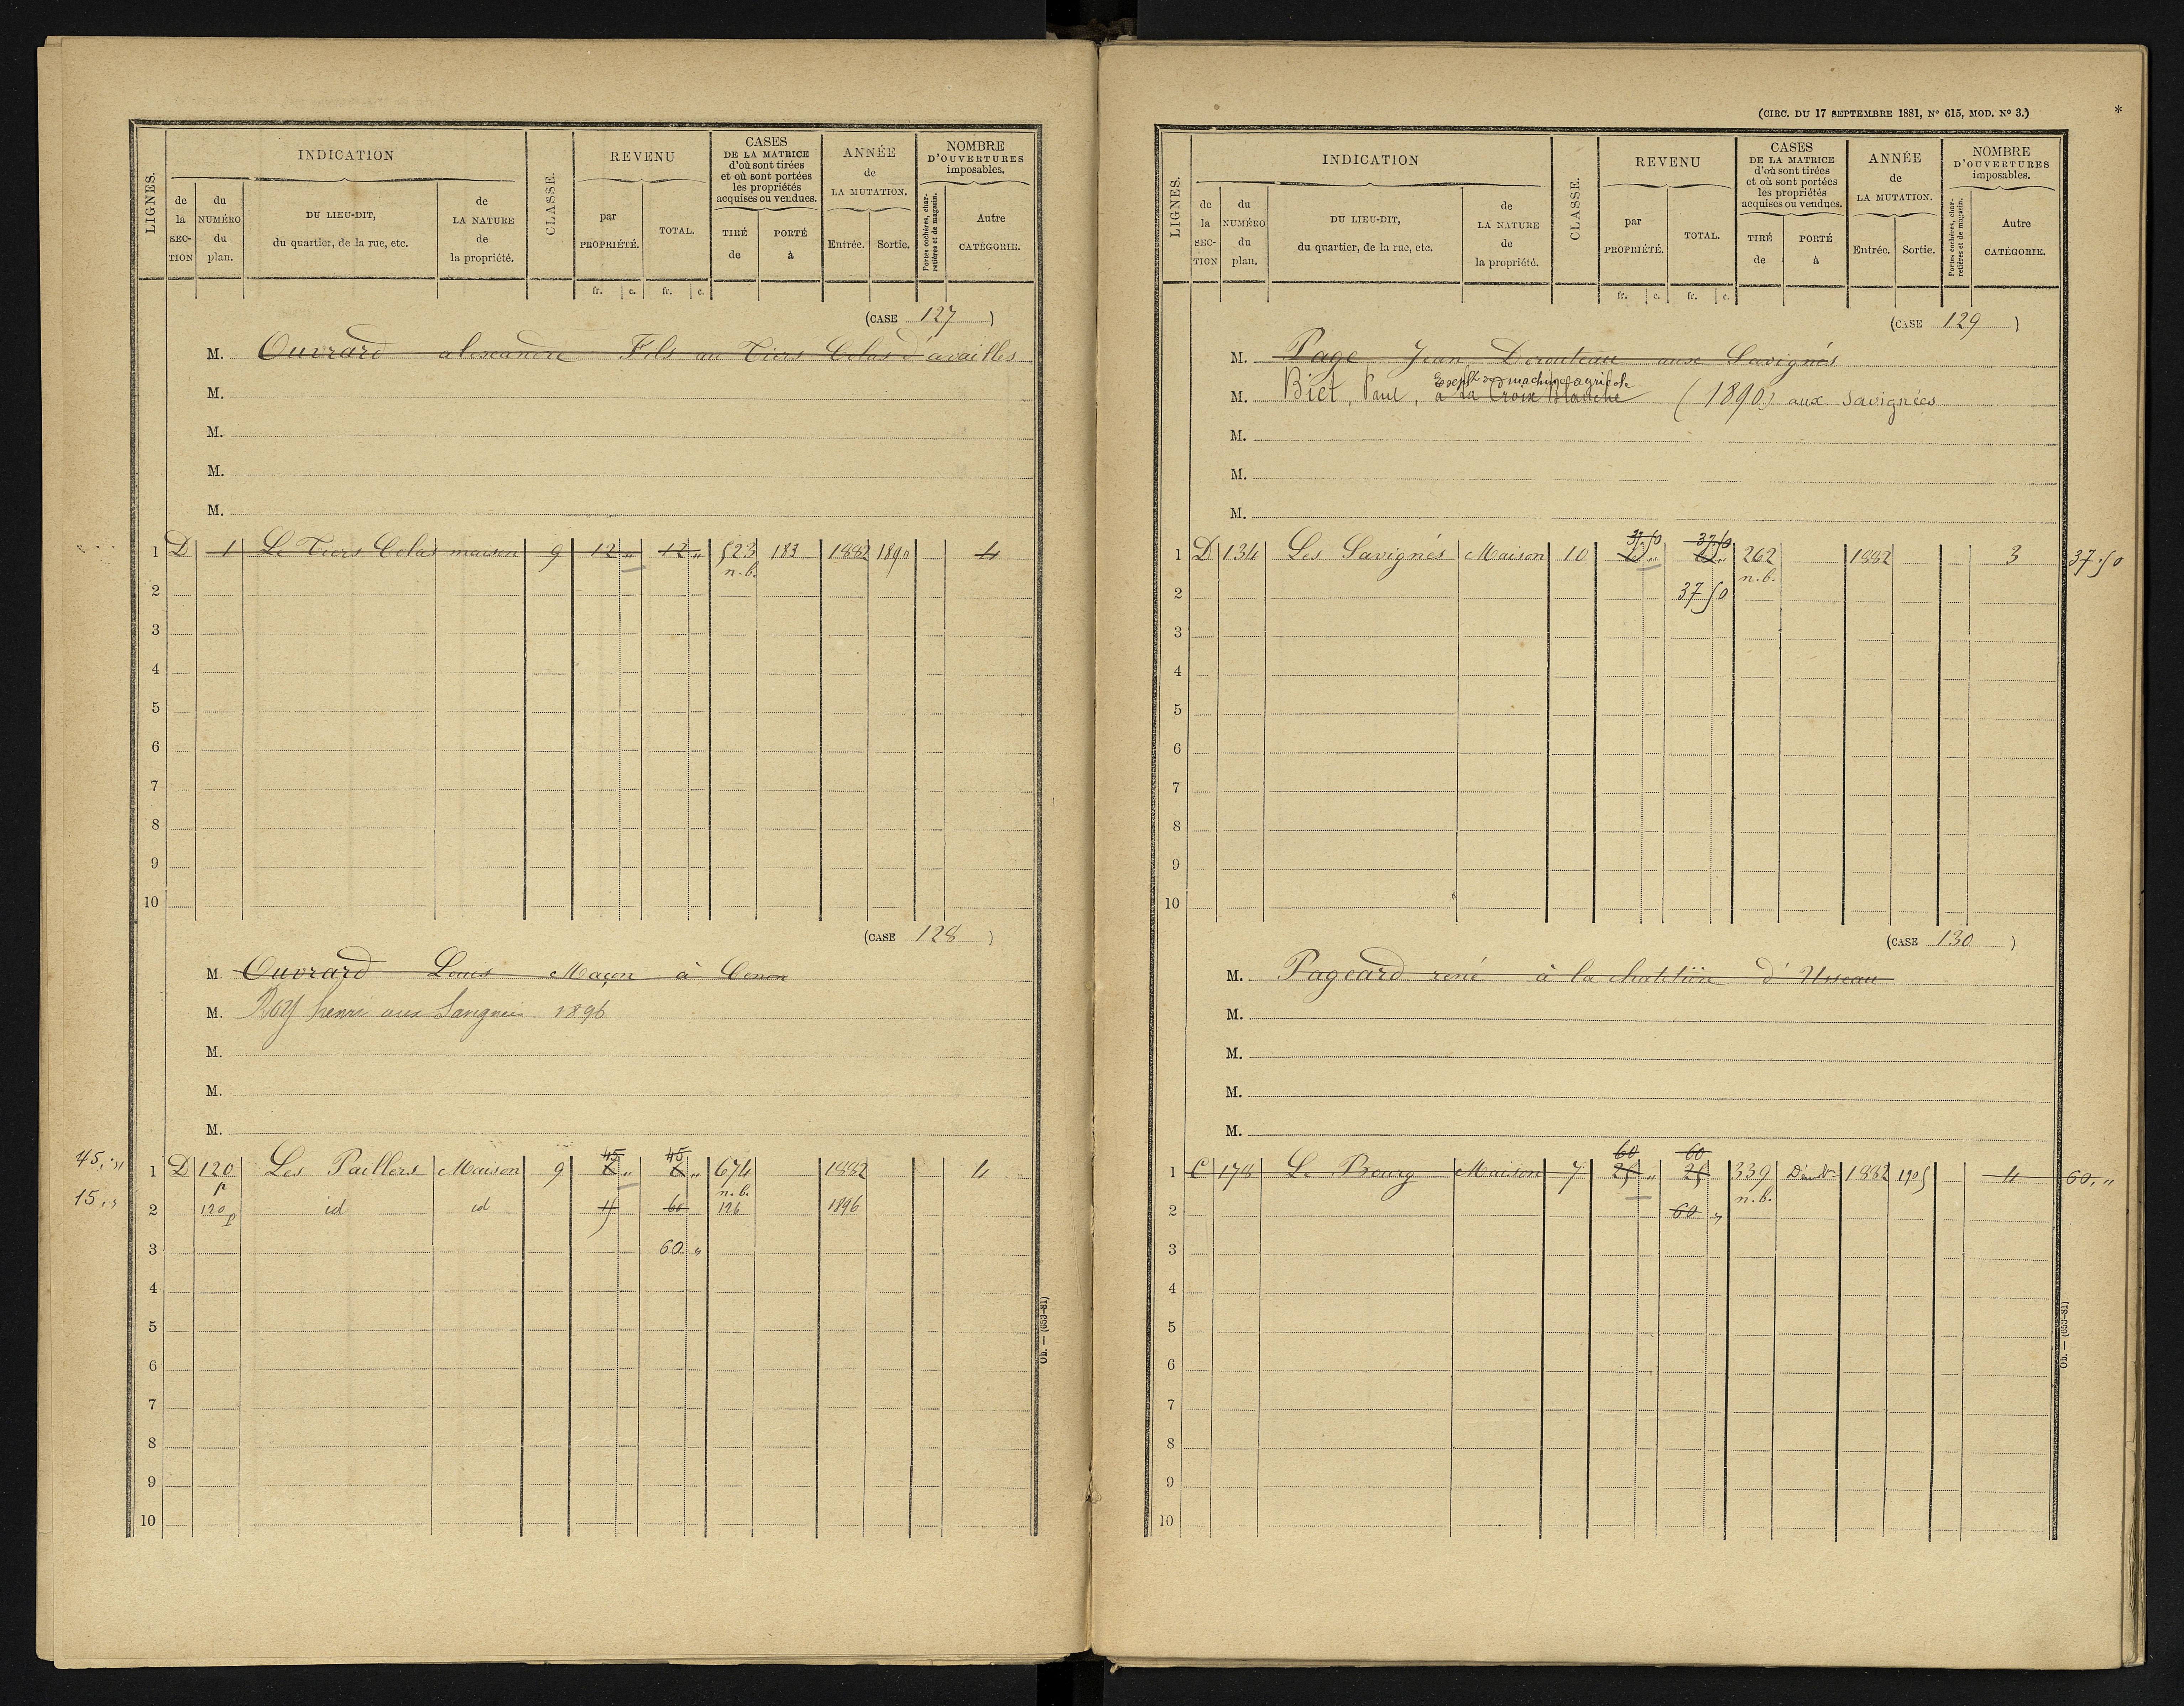 LIGNES.
INDICATION
de la SECTION
du NUMÉRO du plan.
DU LIEU-DIT, du quartier, de la rue, etc.
de LA NATURE de la propriété.
CLASSE.
REVENU
par PROPRIÉTÉ.
TOTAL.
fr. c. fr. c.
CASES DE LA MATRICE d'où sont tirées et où sont portées les propriétés acquises ou vendues.
TIRÉ de
PORTÉ à
ANNÉE de LA MUTATION.
Entrée.
Sortie.
NOMBRE D'OUVERTURES imposables.
Portes cochères, charretières et de magasin.
Autre CATÉGORIE.
(CASE 127)
M. Ouvrard alexandre Fils au Tiers Colas d'availles
M.
M.
M.
M.
1 D 1 Le Tiers Colas maison 9 12 " 12 " 523 183 1882 1890 4
n.b.
2
3
4
5
6
7
8
9
10
(CASE 128)
M. Ouvrard Louis Maçon à Cenon
M. Roy henri aux Savignés 1896
M.
M.
M.
45 45
45," 1 D 120 Les Paillers Maison 9 6 " 6 " 674 1882 4
p n.b.
15," 2 120 p id id 15 60 126 1896
3 60 "
4
5
6
7
8
9
10
Ob. — (653-81)
(CIRC. DU 17 SEPTEMBRE 1881, Nº 615, MOD. Nº 3.)
*
LIGNES.
INDICATION
de la SECTION
du NUMÉRO du plan.
DU LIEU-DIT, du quartier, de la rue, etc.
de LA NATURE de la propriété.
CLASSE.
REVENU
par PROPRIÉTÉ.
TOTAL.
fr. c. fr. c.
CASES DE LA MATRICE d'où sont tirées et où sont portées les propriétés acquises ou vendues.
TIRÉ de
PORTÉ à
ANNÉE de LA MUTATION.
Entrée.
Sortie.
NOMBRE D'OUVERTURES imposables.
Portes cochères, charretières et de magasin.
Autre CATÉGORIE.
(CASE 129)
M. Page Jean Derouteau aux Savignés
machines agricole
M. Biet, Paul, a la Croix Blanche (1890) aux Savignées
M.
M.
M.
37.50 37.50
1 D 134 Les Savignés Maison 10 262 1882 3 37.50
n.b.
2 37 50
3
4
5
6
7
8
9
10
(CASE 130)
M. Pageard rené à la d'Usseau
M.
M.
M.
M.
60 60
1 C 178 Le Bourg Maison 7 25 " 25 339 1882 1905 4 60."
n.b.
2 60 "
3
4
5
6
7
8
9
10
Ob. — (653-81)